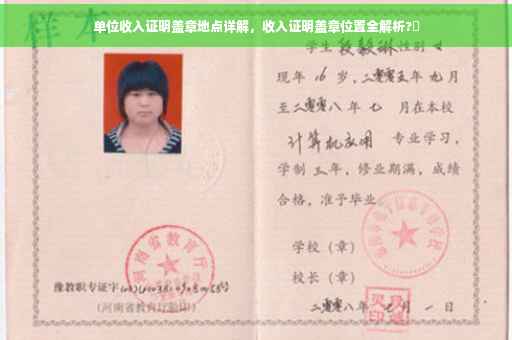 单位收入证明盖章地点详解，收入证明盖章位置全解析?
样本
学生 段毅琳 性别 女
现年 16 岁，二零零五年 九月
至二零零八年 七 月在本校
计算机应用 专业学习，
学制 三年，修业期满，成绩
合格，准予毕业
学校（章）
校长（章）
二零零八年 七 月 一 日
河南省教育厅
豫教职专证字
(河南省教育厅验印)